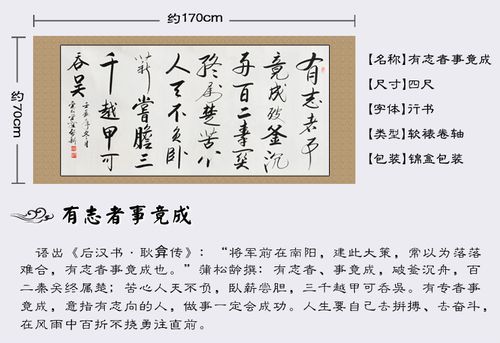 约170cm
约70cm
有志者事
竟成破釜沉
舟百二秦关
终属楚苦心
人天不负卧
薪嘗膽三
千越甲可
吞吴
【名称】有志者事竟成
【尺寸】四尺
【字体】行书
【类型】软裱卷轴
【包装】锦盒包装
有志者事竟成
语出《后汉书·耿弇传》：“将军前在南阳，建此大策，常以为落落
难合，有志者事竟成也。”蒲松龄撰：有志者、事竟成，破釜沉舟，百
二秦关终属楚；苦心人天不负，臥薪尝胆，三千越甲可吞吴。有专者事
竟成，意指有志向的人，做事一定会成功。人生要自己去拼搏、去奋斗，
在风雨中百折不挠勇注直前。